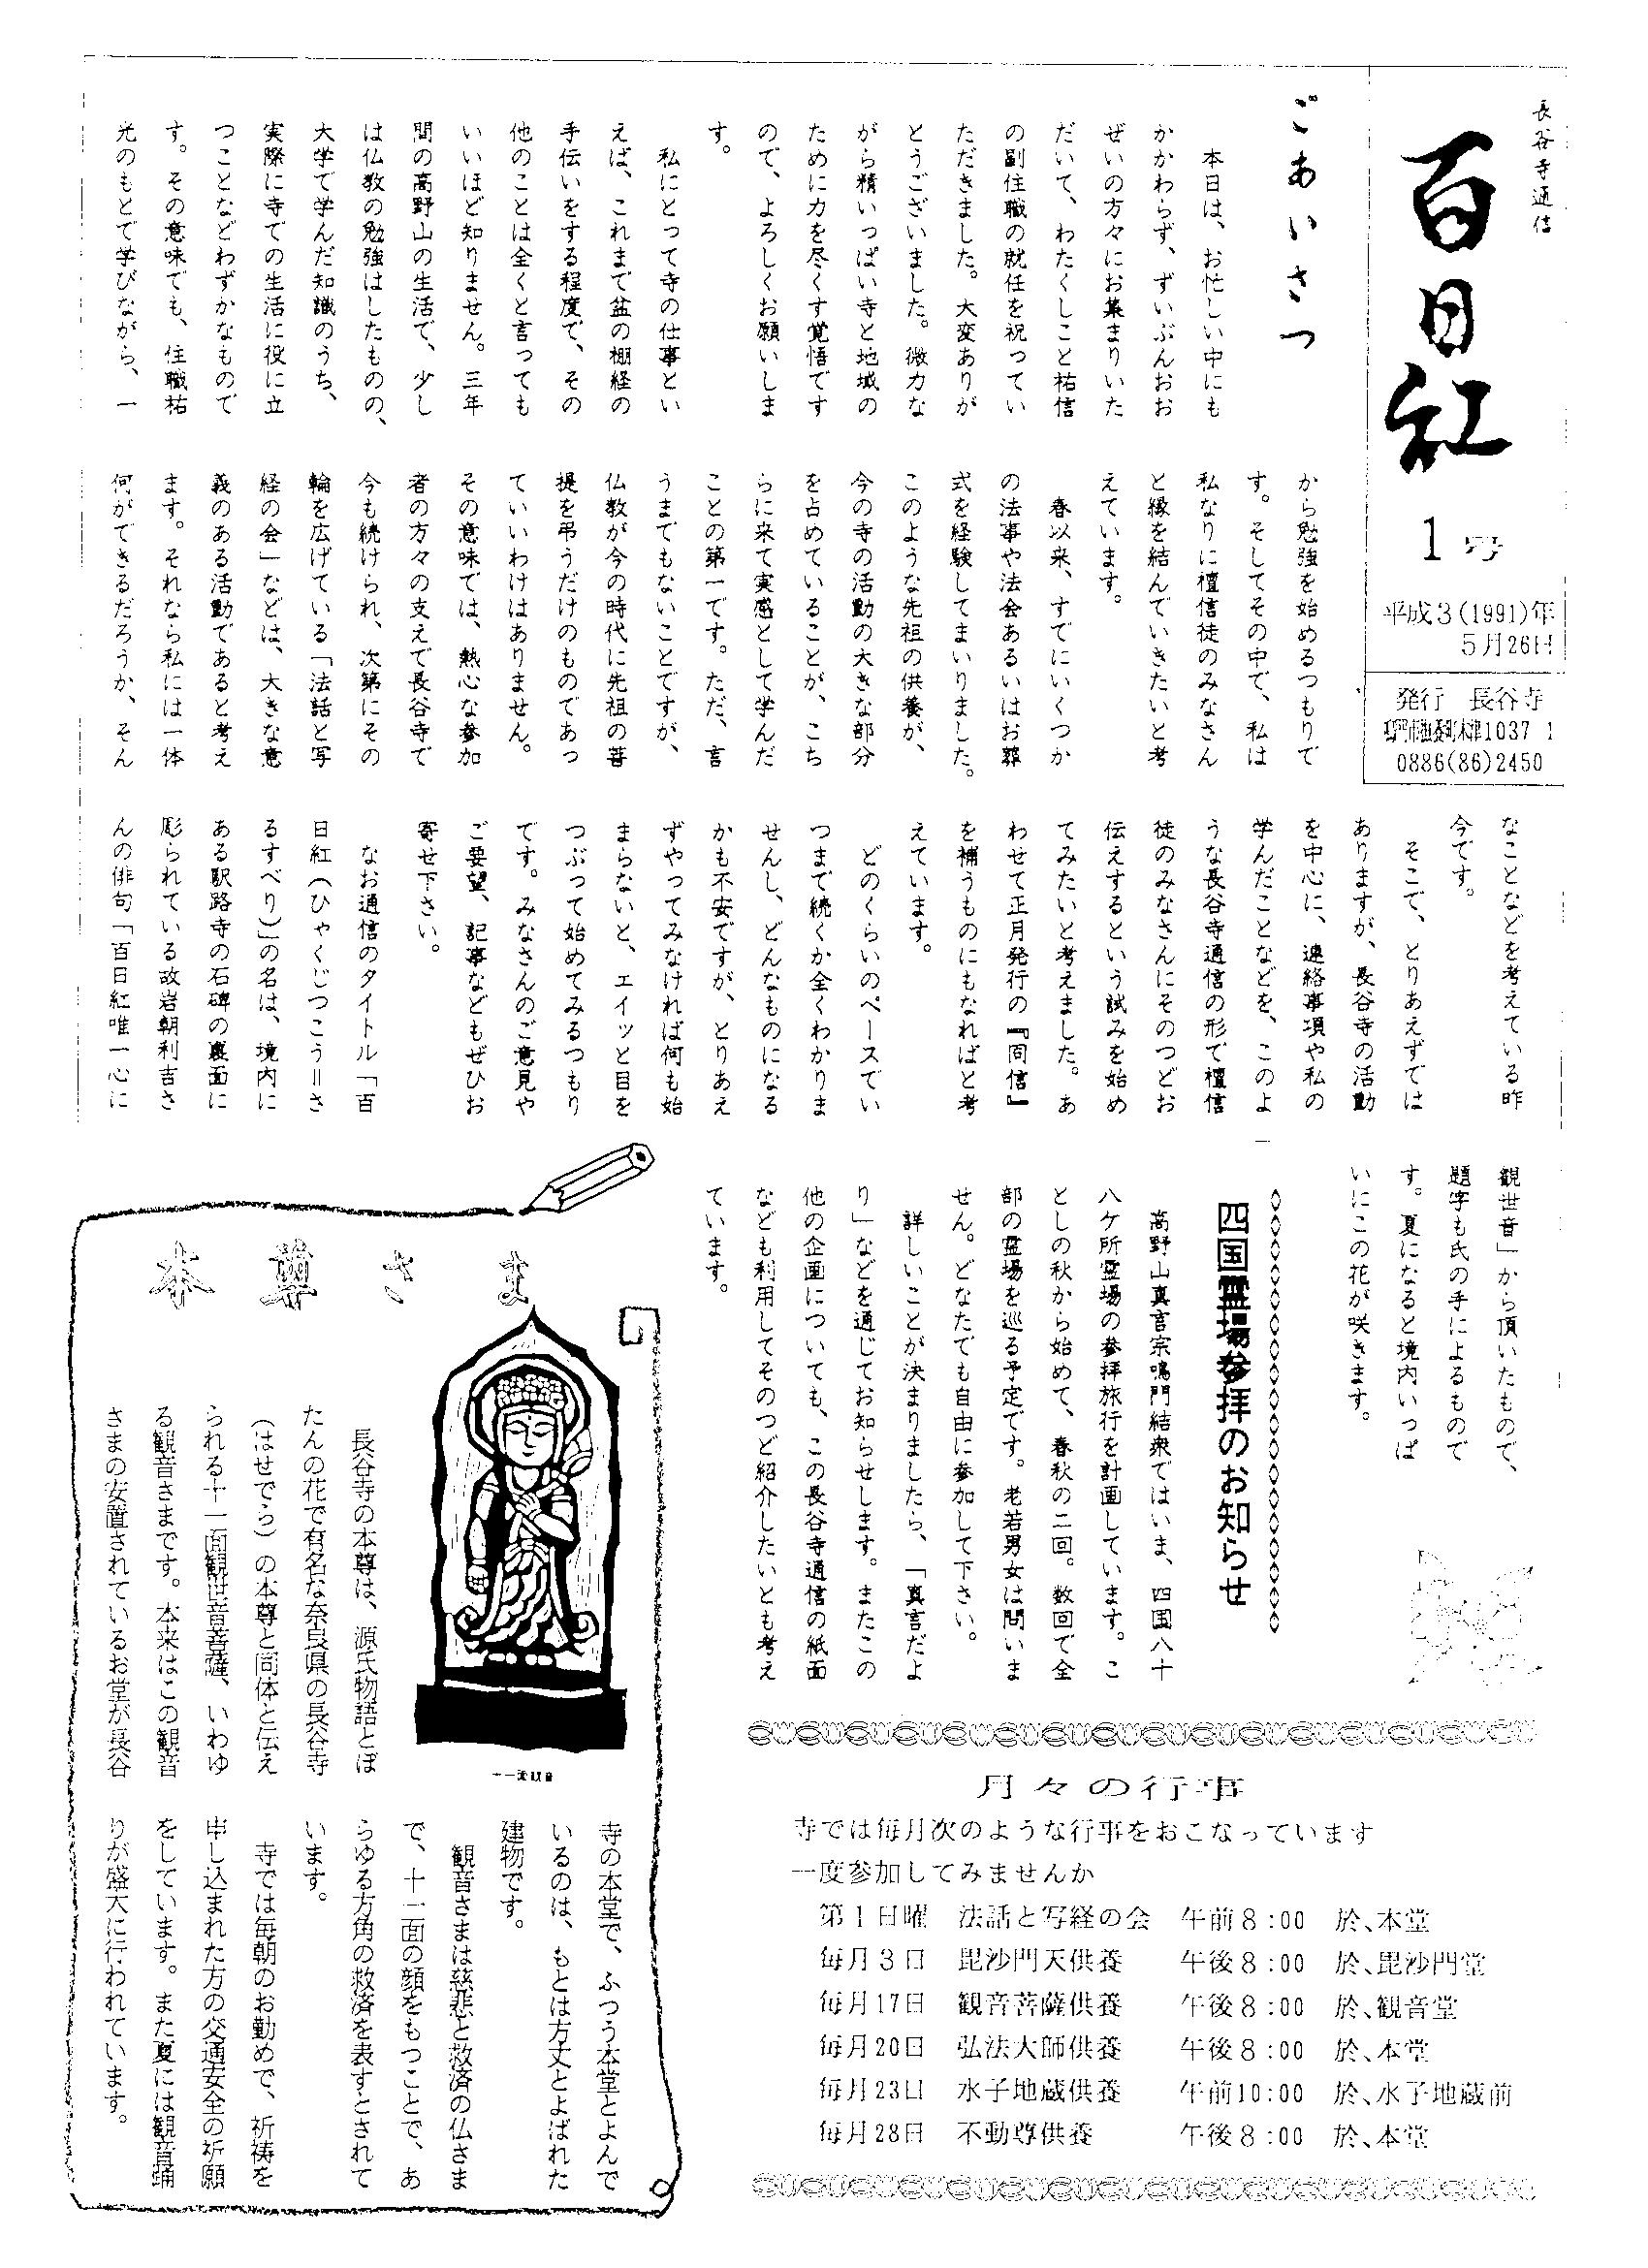 長谷寺通信
百日紅
1号
平成3(1991)年
5月26日
発行　長谷寺
1037 1
0886(86)2450
ごあいさつ
本日は、お忙しい中にも
かかわらず、ずいぶんおお
ぜいの方々にお集まりいた
だいて、わたくしこと祐信
の副住職の就任を祝ってい
ただきました。大変ありが
とうございました。微力な
がら精いっぱい寺と地域の
ために力を尽くす覚悟です
ので、よろしくお願いしま
す。
私にとって寺の仕事とい
えば、これまで盆の棚経の
手伝いをする程度で、その
他のことは全くと言っても
いいほど知りません。三年
間の高野山の生活で、少し
は仏教の勉強はしたものの、
大学で学んだ知識のうち、
実際に寺での生活に役に立
つことなどわずかなもので
す。その意味でも、住職祐
光のもとで学びながら、一
から勉強を始めるつもりで
す。そしてその中で、私は
私なりに檀信徒のみなさん
と縁を結んでいきたいと考
えています。
春以来、すでにいくつか
の法事や法会あるいはお葬
式を経験してまいりました。
このような先祖の供養が、
今の寺の活動の大きな部分
を占めていることが、こち
らに来て実感として学んだ
ことの第一です。ただ、言
うまでもないことですが、
仏教が今の時代に先祖の菩
提を弔うだけのものであっ
ていいわけはありません。
その意味では、熱心な参加
者の方々の支えで長谷寺で
今も続けられ、次第にその
輪を広げている「法話と写
経の会」などは、大きな意
義のある活動であると考え
ます。それなら私には一体
何ができるだろうか、そん
なことなどを考えている昨
今です。
そこで、とりあえずでは
ありますが、長谷寺の活動
を中心に、連絡事項や私の
学んだことなどを、このよ
うな長谷寺通信の形で檀信
徒のみなさんにそのつどお
伝えするという試みを始め
てみたいと考えました。あ
わせて正月発行の『同信』
を補うものにもなればと考
えています。
どのくらいのペースでい
つまで続くか全くわかりま
せんし、どんなものになる
かも不安ですが、とりあえ
ずやってみなければ何も始
まらないと、エイッと目を
つぶって始めてみるつもり
です。みなさんのご意見や
ご要望、記事などもぜひお
寄せ下さい。
なお通信のタイトル「百
日紅（ひゃくじつこう＝さ
るすべり）」の名は、境内に
ある駅路寺の石碑の裏面に
彫られている故岩朝利吉さ
んの俳句「百日紅唯一心に
観世音」から頂いたもので、
題字も氏の手によるもので
す。夏になると境内いっぱ
いにこの花が咲きます。
四国霊場参拝のお知らせ
高野山真言宗鳴門結衆ではいま、四国八十
八ケ所霊場の参拝旅行を計画しています。こ
としの秋から始めて、春秋の二回。数回で全
部の霊場を巡る予定です。老若男女は問いま
せん。どなたでも自由に参加して下さい。
詳しいことが決まりましたら、「真言だよ
り」などを通じてお知らせします。またこの
他の企画についても、この長谷寺通信の紙面
なども利用してそのつど紹介したいとも考え
ています。
本尊さま
十一面観音
長谷寺の本尊は、源氏物語とぼ
たんの花で有名な奈良県の長谷寺
（はせでら）の本尊と同体と伝え
られる十一面観世音菩薩、いわゆ
る観音さまです。本来はこの観音
さまの安置されているお堂が長谷
寺の本堂で、ふつう本堂とよんで
いるのは、もとは方丈とよばれた
建物です。
観音さまは慈悲と救済の仏さま
で、十一面の顔をもつことで、あ
らゆる方角の救済を表すとされて
います。
寺では毎朝のお勤めで、祈祷を
申し込まれた方の交通安全の祈願
をしています。また夏には観音踊
りが盛大に行われています。
月々の行事
寺では毎月次のような行事をおこなっています
一度参加してみませんか
第1日曜　法話と写経の会　午前8:00　於、本堂
毎月3日　毘沙門天供養　午後8:00　於、毘沙門堂
毎月17日　観音菩薩供養　午後8:00　於、観音堂
毎月20日　弘法大師供養　午後8:00　於、本堂
毎月23日　水子地蔵供養　午前10:00　於、水子地蔵前
毎月28日　不動尊供養　午後8:00　於、本堂